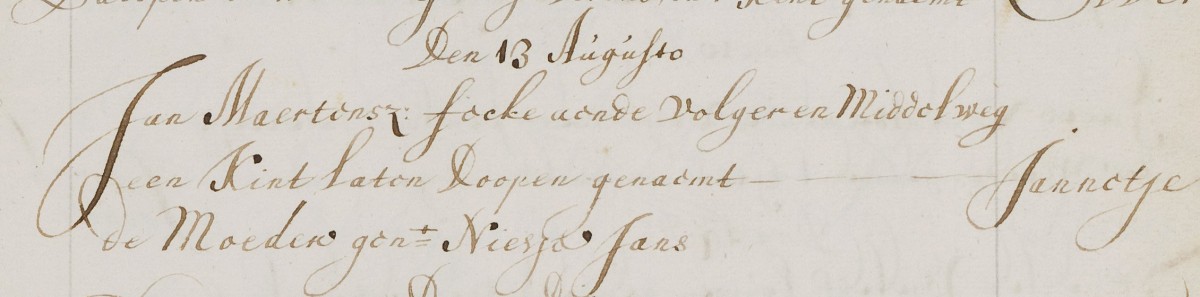 Den 13 Augusto
Jan Maertensz: focke aende Volger en Middelweg
een Kint laten Doopen genaemt — — — Jannetje
de Moeder gent= Niesje Jans